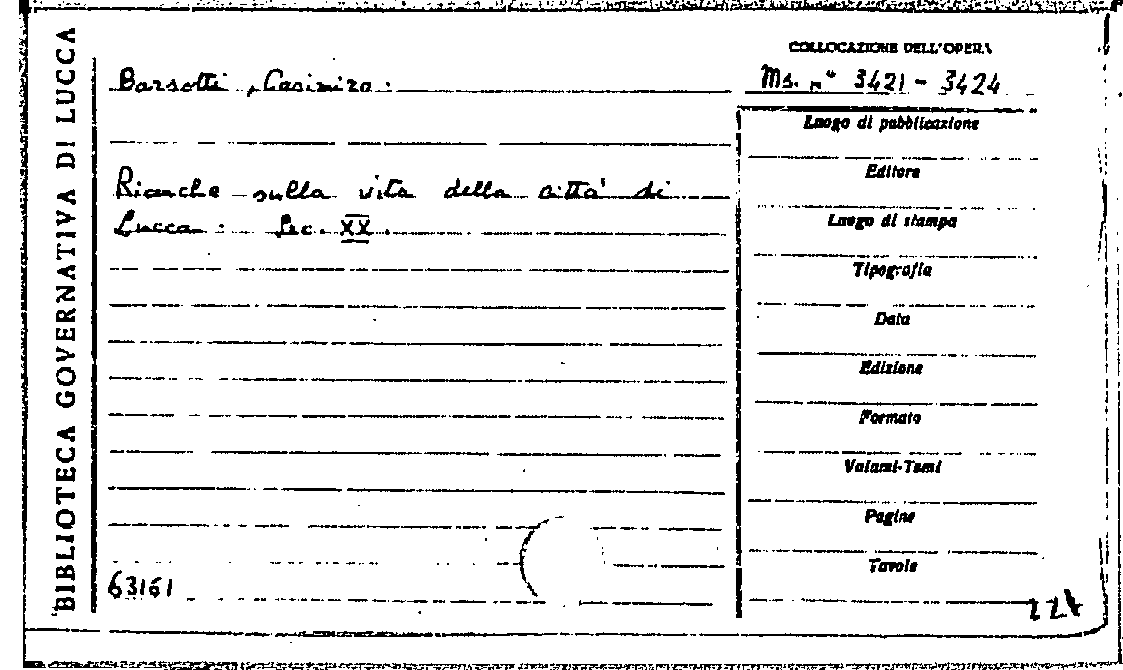 BIBLIOTECA GOVERNATIVA DI LUCCA
Barsotti, Casimiro.
Ricerche sulla vita della città di
Lucca. Sec. XX.
63161
COLLOCAZIONE DELL'OPERA
Ms. n° 3421 - 3424
Luogo di pubblicazione
Editore
Luogo di stampa
Tipografia
Data
Edizione
Formato
Volumi-Tomi
Pagine
Tavole